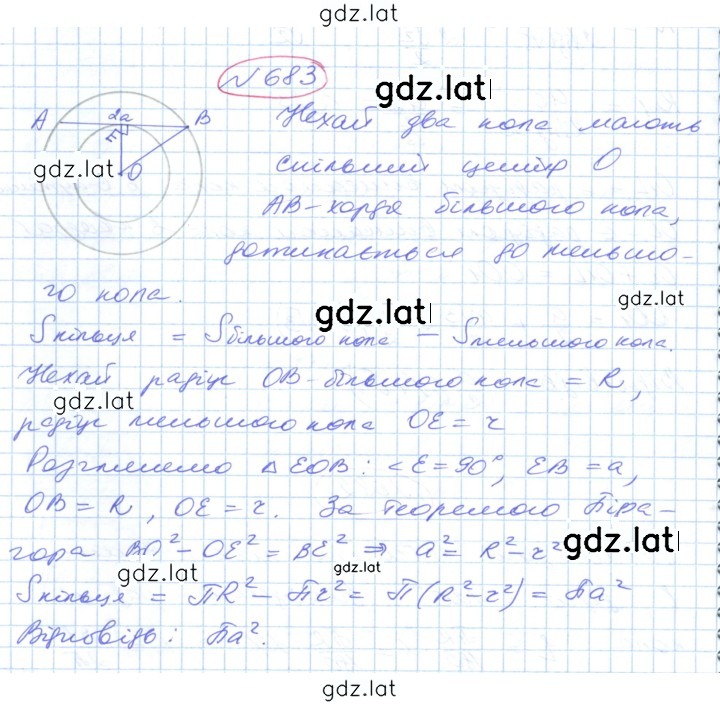 gdz.lat
№ 683
gdz.lat
A 2a B
E
O
gdz.lat
Нехай два кола мають
спільний центр O
AB - хорда більшого кола,
дотикається до меньшо-
го кола.
gdz.lat
gdz.lat
Sкільця = Sбільшого кола − Sменьшого кола.
Нехай радіус OB - більшого кола = R,
gdz.lat
радіус меньшого кола OE = r
Розглянемо △EOB: <E = 90°, EB = a,
OB = R, OE = r. За теоремою Піфа-
гора − OE² = BE² ⇒ a² = R² − r²
gdz.lat
gdz.lat
gdz.lat
Sкільця = ПR² − Пr² = П(R² − r²) = Пa²
Відповідь: Пa².
gdz.lat